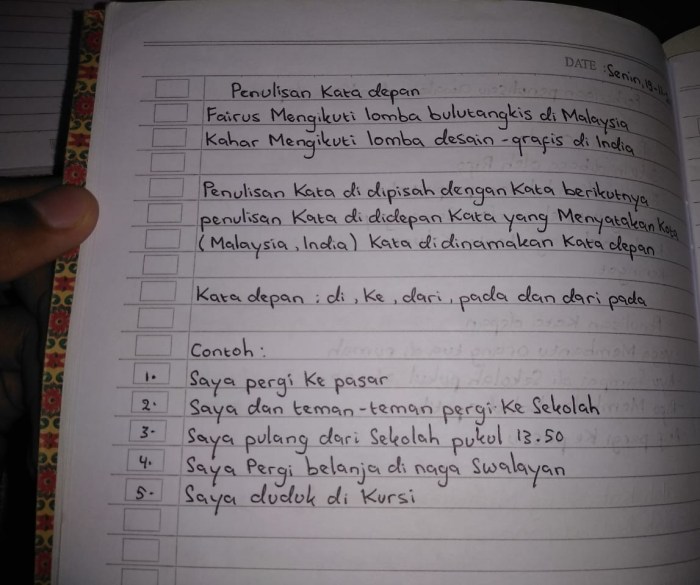 DATE : Senin, 19-11-
Penulisan Kata depan
Fairus Mengikuti lomba bulutangkis di Malaysia
Kahar Mengikuti lomba desain-grafis di India
Penulisan Kata di dipisah dengan Kata berikutnya
penulisan Kata di didepan Kata yang Menyatakan Kota
(Malaysia, India) Kata di dinamakan Kata depan
Kata depan : di, Ke, dari, pada dan dari pada
Contoh :
1. Saya pergi Ke pasar
2. Saya dan teman-teman pergi Ke Sekolah
3. Saya pulang dari Sekolah pukul 13.50
4. Saya Pergi belanja di naga Swalayan
5. Saya duduk di Kursi